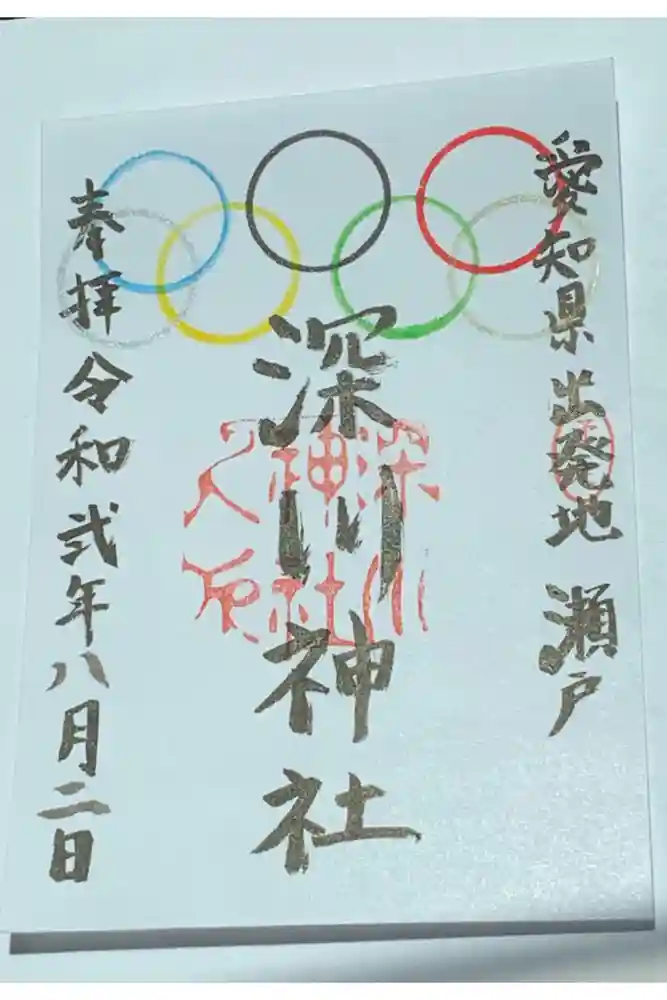 愛知県出発地 瀬戸
深川神社
深川
神社
之原
奉拝 令和弐年八月二日